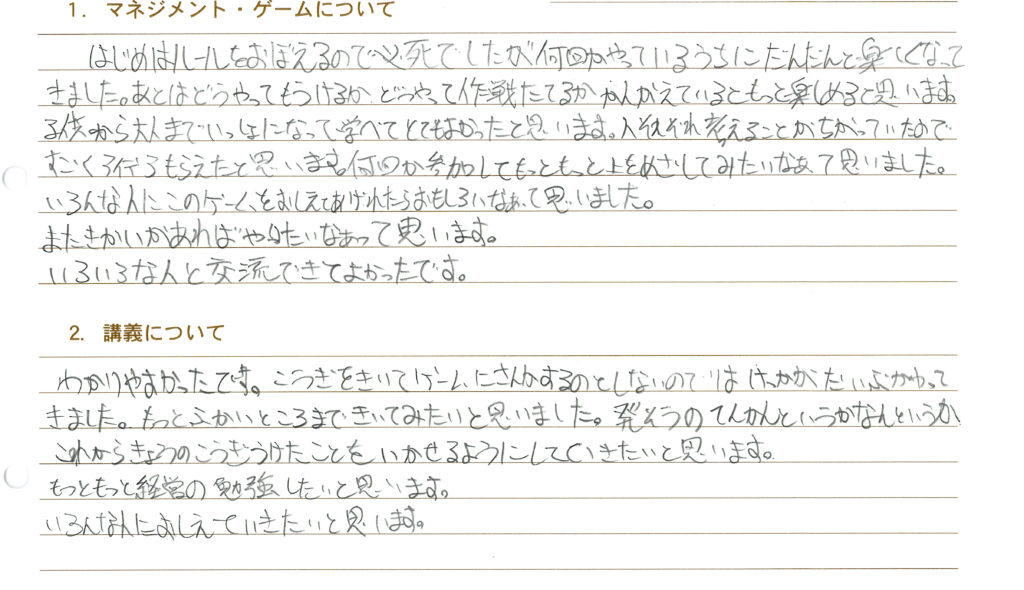 1. マネジメント・ゲームについて
はじめはルールをおぼえるので必死でしたが何回かやっているうちにだんだんと楽しくなって
きました。あとはどうやってもうけるか、どうやって作戦たてるか かんがえているともっと楽しめると思います。
子供から大人までいっしょになって学べてとてもよかったと思います。人それぞれ考えることがちがっていたので
すごく もらえたと思います。何回か参加してもっともっと上をめざしてみたいなぁて思いました。
いろんな人にこのゲームをおしえてあげれたらおもしろいなぁって思いました。
またきかいがあればやりたいなぁって思います。
いろいろな人と交流できてよかったです。
2. 講義について
わかりやすかったです。こうぎをきいてゲームにさんかするのとしないのではけっかがだいぶかわって
きました。もっとふかいところまできいてみたいと思いました。発そうのてんかんというかなんというか
これからきょうのこうぎうけたことをいかせるようにしていきたいと思います。
もっともっと経営の勉強したいと思います。
いろんな人におしえていきたいと思います。